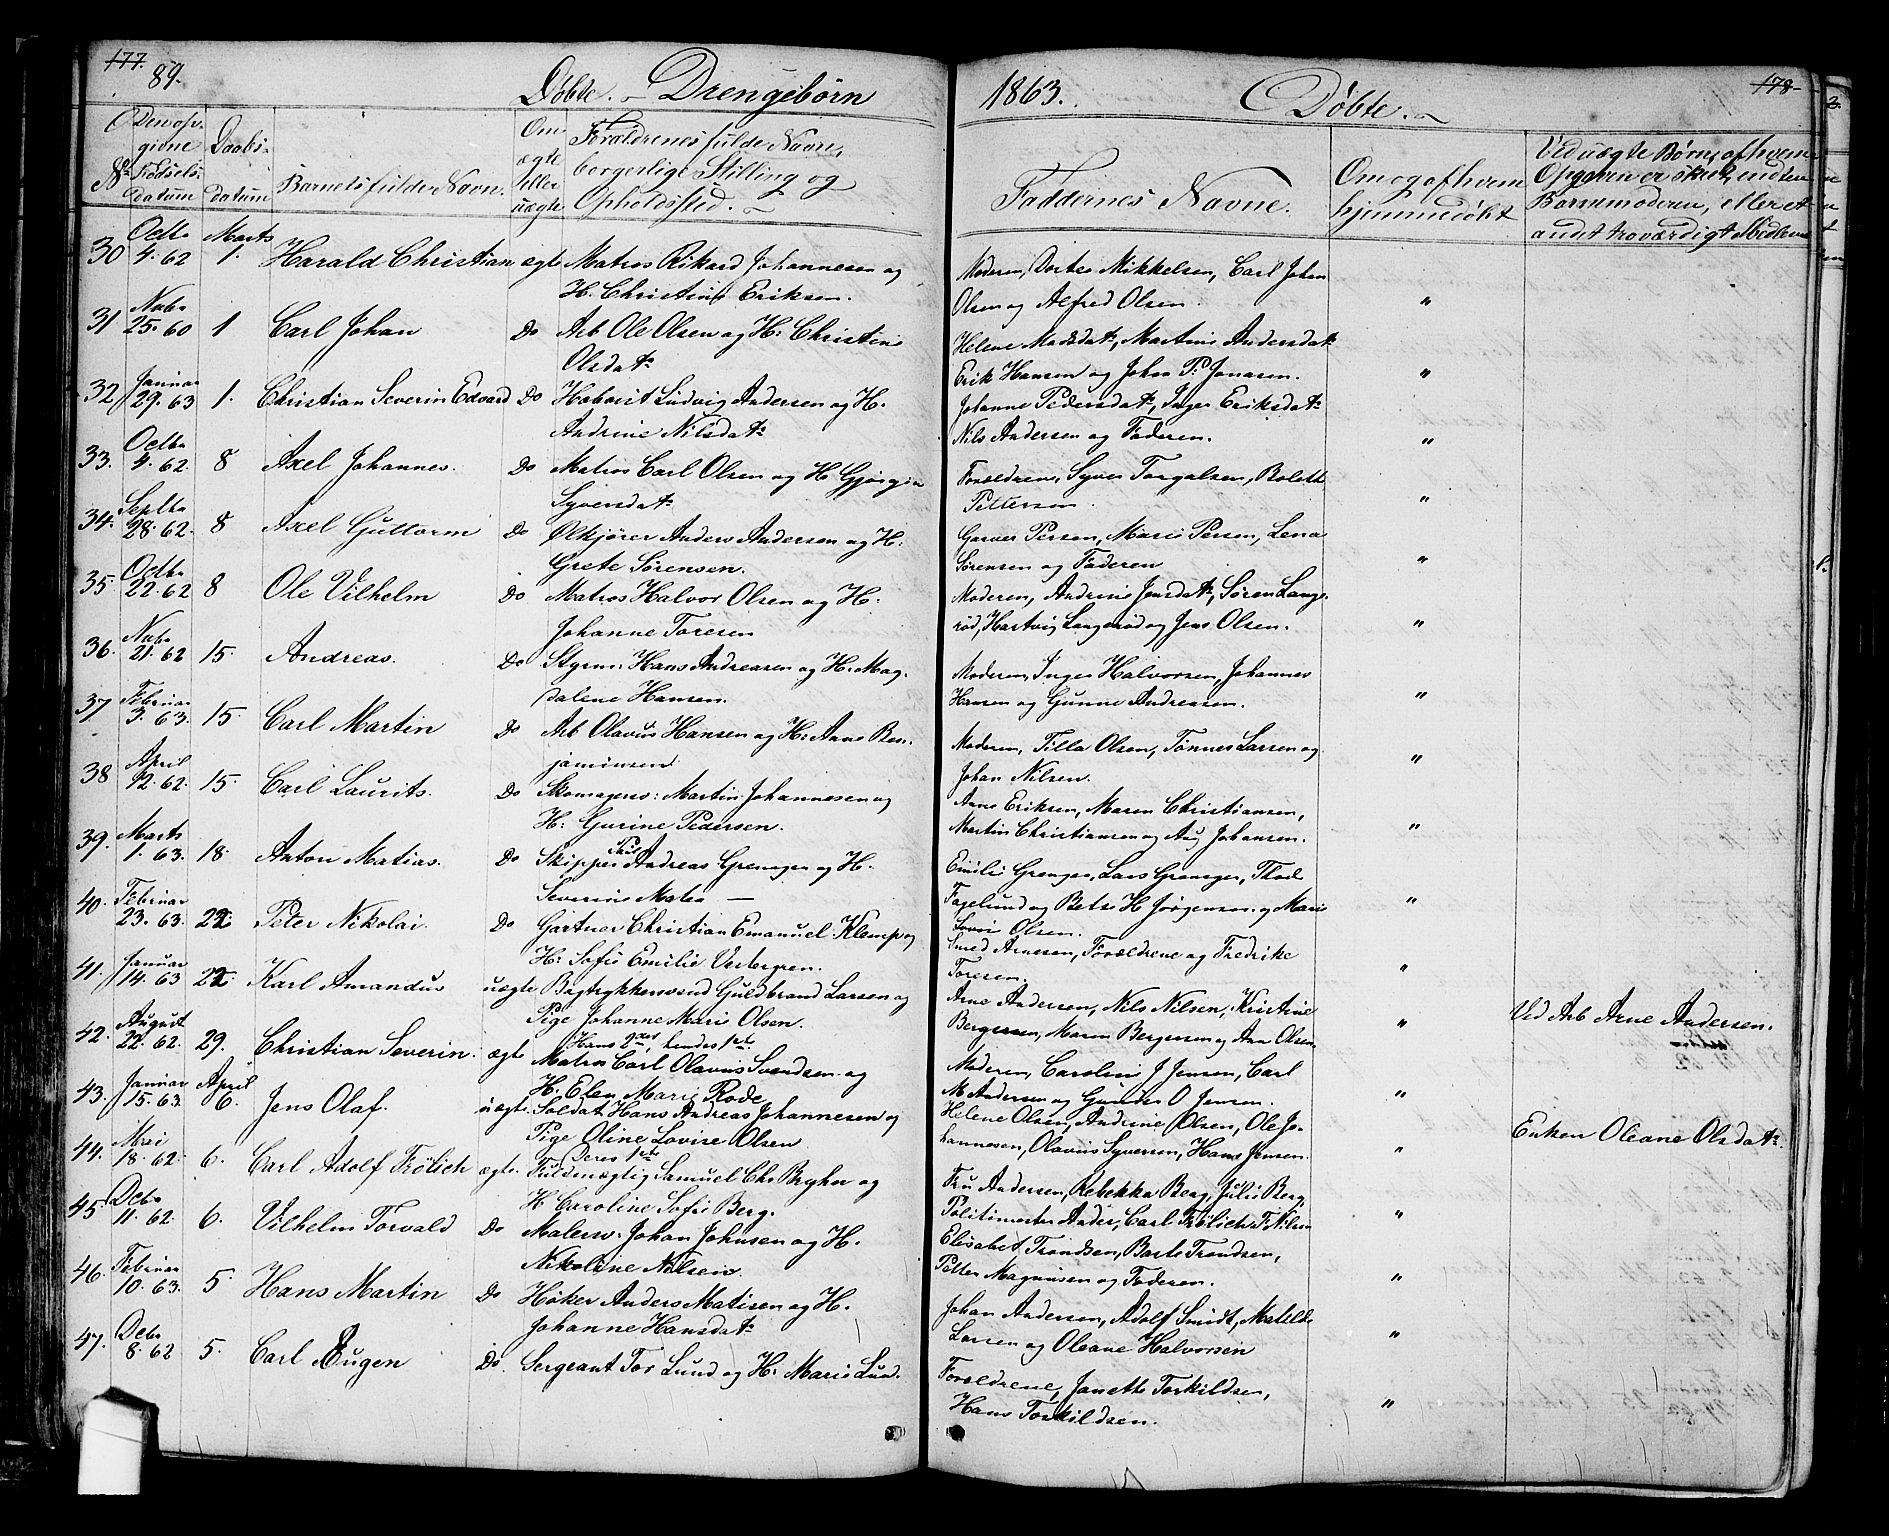 177.
89.
Døbte. Drengebørn
1863.
Døbte.
178
No
Den opgivne Fødselsdatum
Daabsdatum
Barnets fulde Navn.
Om ægte eller uægte
Forældrenes fulde Navne, borgerlige Stilling og Opholdssted.
Faddernes Navne.
Om og af hvem hjemmedøbt
Ved uægte Børn, af hvem Opgaven er skeet, enten Barnemoderen, eller et andet troværdigt Midlem
30 Octbr 4. 62 Marts 1. Harald Christian ægte Matros Rikard Johannesen og
H. Christine Eriksen.
Moderen, Dortea Mikkelsen, Carl Johan
Olsen og Alfred Olsen. "
31 Novbr 25. 60 1 Carl Johan Do Arb Ole Olsen og H: Christine
Olsdatr
Helene Madsdatr, Martine Andersdatr
Erik Hansen og Johan P. Jonasen. "
32 Januar 29. 63 1. Christian Severin Edvard Do Ludvig Andersen og H.
Andrine Nilsdatr
Johanne Pedersdatr, Inger Eriksdatr
Nils Andersen og Faderen. "
33. Octbr 4. 62. 8 Axel Johannes. Do Matros Carl Olsen og H.
Syversdatr
Forældrene, Syver Torgalsen, Bolette
Pettersen. "
34. Septbr 28. 62. 8 Axel Guttorm Do Ølkjører Anders Andersen og H:
Grete Sørensen.
Garver Persen, Marie Persen, Lena
Sørensen og Faderen "
35. Octbr 22. 62 8 Ole Vilhelm Do Matros Halvor Olsen og H:
Johanne Toresen
Moderen, Andrine Jensdatr, Søren Lange-
rød, Hartvig Langerød og Jens Olsen. "
36. Novbr 21. 62 15. Andreas. Do Styrm: Hans Andreasen og H: Mag-
dalene Hansen.
Moderen, Inger Halvorsen, Johannes
Hansen og Gunne Andreasen. "
37 Februar 3. 63. 15. Carl Martin Do Arb Olavus Hansen og H: Anne Ben-
jaminsen
Moderen, Tilla Olsen, Tønnes Larsen og
Johan Nilsen. "
38 April 12. 62. 15. Carl Laurits. Do Skomagersv: Martin Johannesen og
H: Gurine Pedersen.
Anne Eriksen, Maren Christiansen,
Martin Christiansen og Aug Johansen. "
39. Marts 1. 63. 18. Anton Matias. Do Skipper Andreas Grønger og H.
Severine Matea —
Emilie Grenger, Lars Grenger, Thode
Fagelund og Betse H Jørgensen. og Marie
Olsen. "
40. Februar 23. 63. 22. Peter Nikolai. Do Gartner Christian Emanuel Klemp og
H: Sofie Emilie Vestergren.
Smed Arnesen, Forældrene og Fredrike
Toresen. "
41. Januar 14. 63 22 Karl Amandus uægte Bogtrykkersvend Guldbrand Larsen og
Pige Johanne Marie Olsen.
Hans 2det, hendes 1ste.
Arne Andersen, Nils Nilsen, Kristine
Bergersen, Maren Bergersen og Ane Olsen. "
Ved Arb Arne Andersen.
42. August 22. 62. 29. Christian Severin. ægte Matros Carl Olavus Svendsen og
H: Elen Marie Rode
Moderen, Caroline J Jensen, Carl
M Andersen og Gunder O Jensen. "
43. Januar 15. 63. April 6. Jens Olaf. uægte Soldat Hans Andreas Johannesen og
Pige Oline Lovise Olsen
Deres 1ste
Helene Olsen, Andrine Olsen, Ole Jo-
hannesen, Olavus Syversen, Hans Jensen. "
Enken Oleane Olsdatr
44. Mai 18. 62. 6. Carl Adolf Frølich ægte. Fuldmægtig Samuel Chr Bryhn og
H. Caroline Sofie Berg.
Fru Andersen, Rebekka Berg, Julie Berg,
Politimester Ander, Carl Frølich F Nilsen "
45. Decbr 11. 62. 6. Vilhelm Torvald Do Malersv: Johan Johnsen og H.
Nikoline Nilsen.
Elisabet Trondsen, Berte Trondsen,
Petter Magnusen og Faderen. "
46. Februar 10. 63. 5. Hans Martin Do Høker Anders Matisen og H.
Johanne Hansdatr
Johan Andersen, Adolf Smidt, Matilde
Larsen og Oleane Halvorsen "
47. Decbr 8. 62 5. Carl Eugen Do. Sergeant Tor Lund og H: Marie Lund.
Forældrene, Janette Torkildsen,
Hans Torkildsen. "